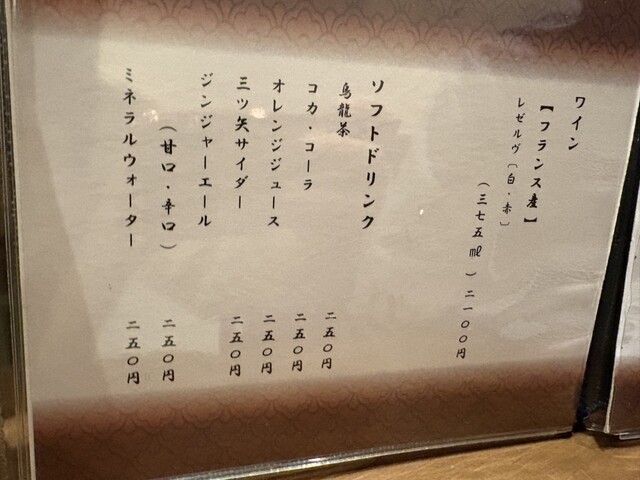 ワイン
【フランス産】
レゼルヴ〔白・赤〕
(三七五㎖) 二一〇〇円
ソフトドリンク
烏龍茶 二五〇円
コカ・コーラ 二五〇円
オレンジジュース 二五〇円
三ツ矢サイダー 二五〇円
ジンジャーエール
(甘口・辛口) 二五〇円
ミネラルウォーター 二五〇円